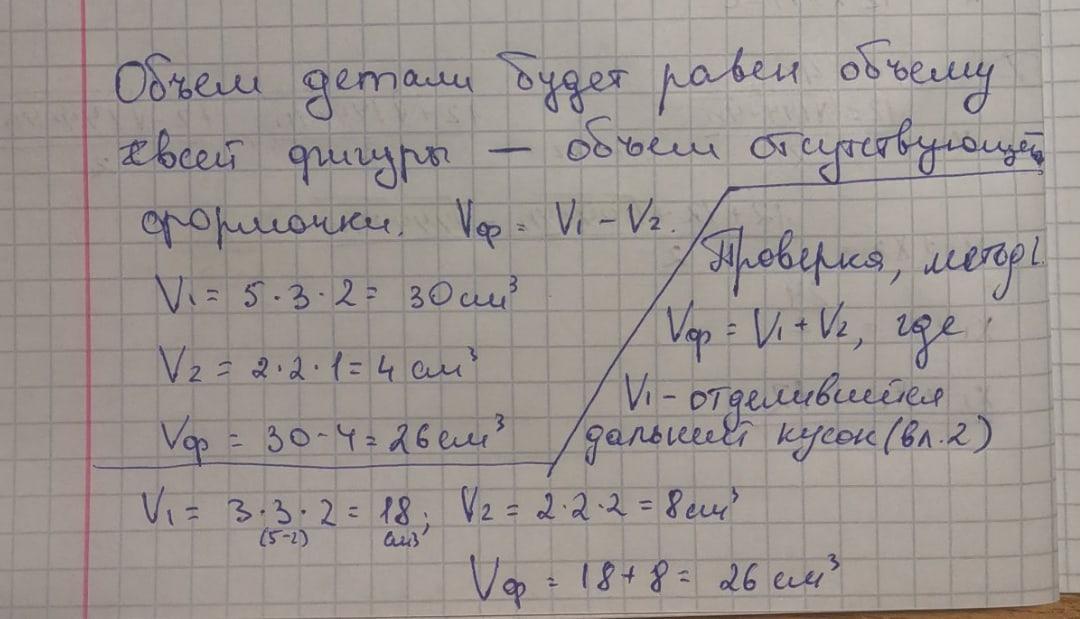 Объем детали будет равен объему
всей фигуры — объем отсутствующей
формочки. Vф = V1 - V2.
V1 = 5·3·2 = 30 см³
V2 = 2·2·1 = 4 см³
Vф = 30-4 = 26 см³
Проверка, метод 1.
Vф = V1 + V2, где
V1 - отделившийся
дальний кусок (вл.2)
V1 = 3·3·2 = 18; V2 = 2·2·2 = 8 см³
(5-2) см³
Vф = 18+8 = 26 см³